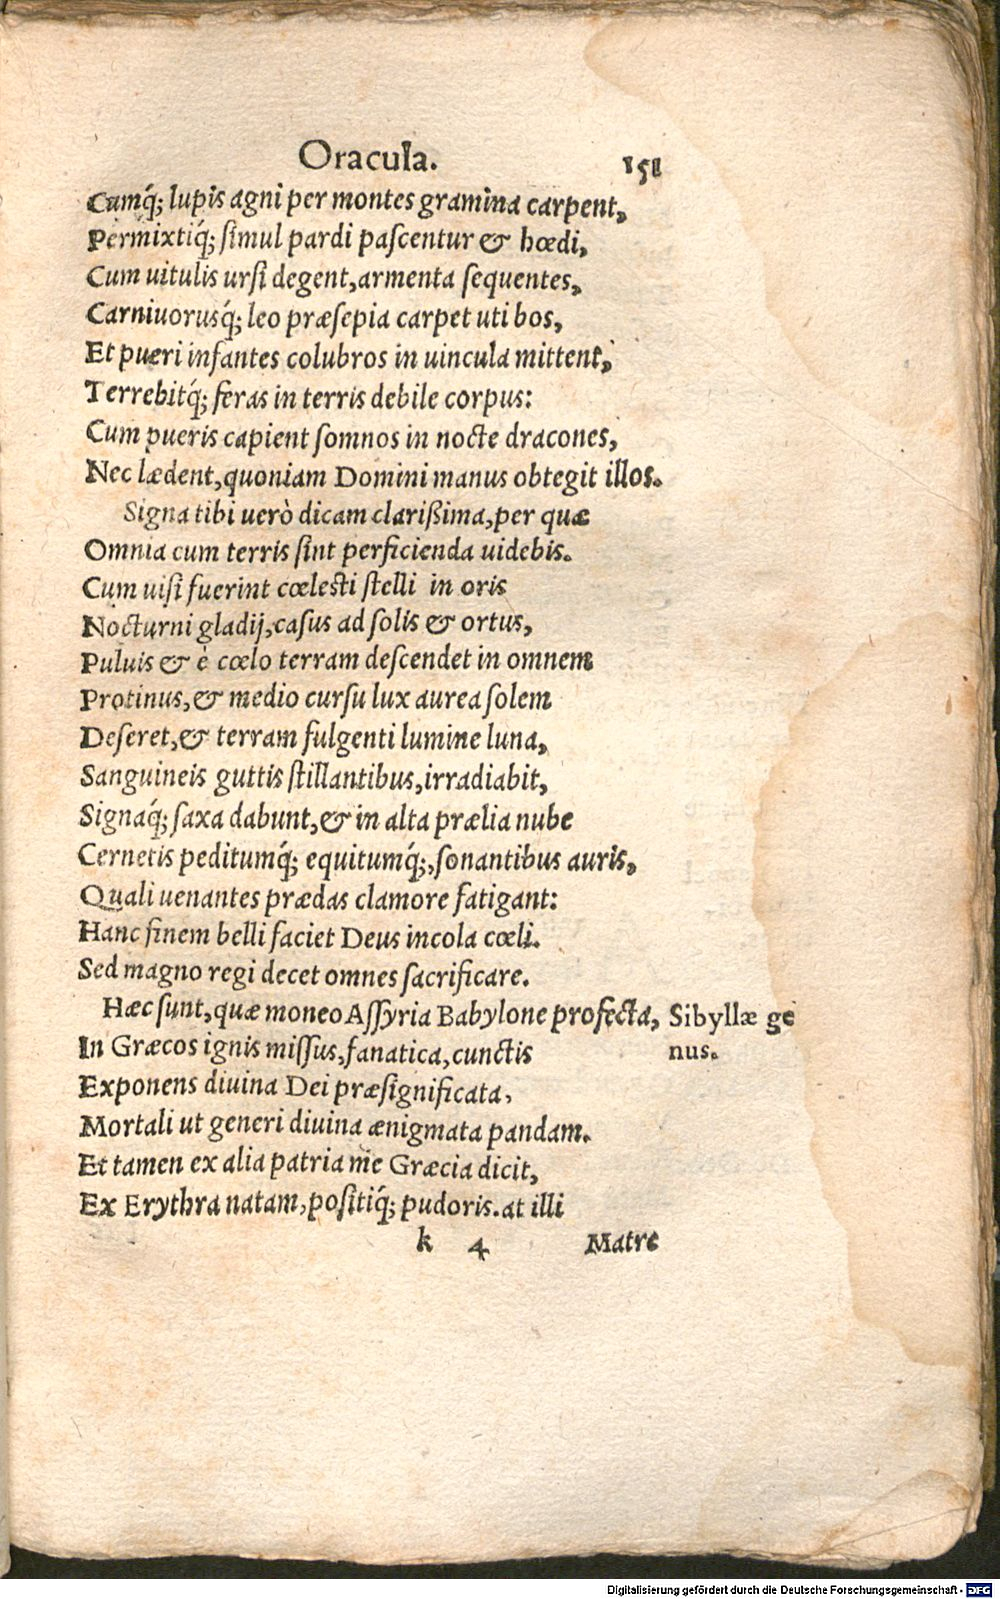 Oracula. 151
Cumq́; lupis agni per montes gramina carpent,
Permixtiq́; simul pardi pascentur & hœdi,
Cum uitulis ursi degent, armenta sequentes,
Carniuorusq́; leo præsepia carpet uti bos,
Et pueri infantes colubros in uincula mittent,
Terrebitq́; feras in terris debile corpus:
Cum pueris capient somnos in nocte dracones,
Nec lædent, quoniam Domini manus obtegit illos.
Signa tibi uerò dicam clarißima, per quæ
Omnia cum terris sint perficienda uidebis.
Cum uisi fuerint cœlesti stelli in oris
Nocturni gladij, casus ad solis & ortus,
Puluis & è cœlo terram descendet in omnem
Protinus, & medio cursu lux aurea solem
Deseret, & terram fulgenti lumine luna,
Sanguineis guttis stillantibus, irradiabit,
Signaq́; saxa dabunt, & in alta prælia nube
Cernetis peditumq́; equitumq́;, sonantibus auris,
Quali uenantes prædas clamore fatigant:
Hanc finem belli faciet Deus incola cœli.
Sed magno regi decet omnes sacrificare.
Hæc sunt, quæ moneo Assyria Babylone profecta, Sibyllæ ge
In Græcos ignis missus, fanatica, cunctis nus.
Exponens diuina Dei præsignificata,
Mortali ut generi diuina ænigmata pandam.
Et tamen ex alia patria me Græcia dicit,
Ex Erythra natam, positiq́; pudoris. at illi
k 4 Matre
Digitalisierung gefördert durch die Deutsche Forschungsgemeinschaft - DFG